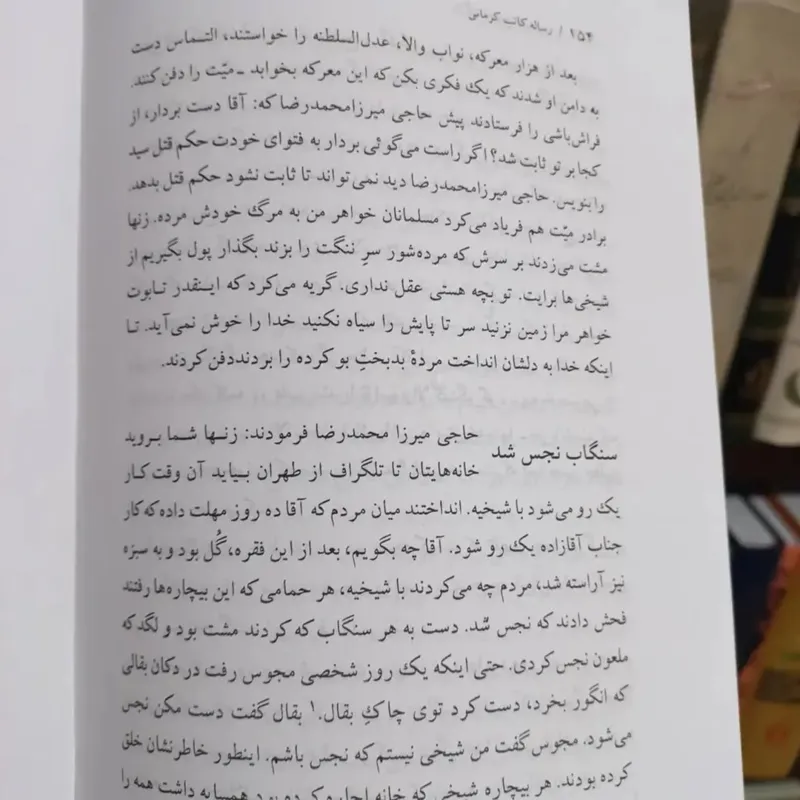 ۱۵۴ / رساله کاتب کرمانی
بعد از هزار معرکه، نواب والا، عدل‌السلطنه را خواستند، التماس دست
به دامن او شدند که یك فکری بکن که این معرکه بخوابد ـ میّت را دفن کنند.
فراش‌باشی را فرستادند پیش حاجی میرزامحمدرضا که: آقا دست بردار، از
کجا بر تو ثابت شد؟ اگر راست می‌گوئی بردار به فتوای خودت حکم قتل سید
را بنویس. حاجی میرزامحمدرضا دید نمی‌تواند تا ثابت نشود حکم قتل بدهد.
برادر میّت هم فریاد می‌کرد مسلمانان خواهر من به مرگ خودش مرده. زنها
مشت می‌زدند بر سرش که مرده‌شور سرِ ننگت را بزند بگذار پول بگیریم از
شیخی‌ها برایت. تو بچه هستی عقل نداری. گریه می‌کرد که اینقدر تابوت
خواهر مرا زمین نزنید سر تا پایش را سیاه نکنید خدا را خوش نمی‌آید. تا
اینکه خدا به دلشان انداخت مردهٔ بدبختِ بو کرده را بردند دفن کردند.
سنگاب نجس شد
حاجی میرزا محمدرضا فرمودند: زنها شما بروید
خانه‌هایتان تا تلگراف از طهران بیاید آن وقت کار
یك رو می‌شود با شیخیه. انداختند میان مردم که آقا ده روز مهلت داده که کار
جناب آقازاده یك رو شود. آقا چه بگویم، بعد از این فقره، گُل بود و به سبزه
نیز آراسته شد، مردم چه می‌کردند با شیخیه، هر حمامی که این بیچاره‌ها رفتند
فحش دادند که نجس شد. دست به هر سنگاب که کردند مشت بود و لگد که
ملعون نجس کردی. حتی اینکه یك روز شخصی مجوس رفت در دکان بقالی
که انگور بخرد، دست کرد توی چاكِ بقال.۱ بقال گفت دست مکن نجس
می‌شود. مجوس گفت من شیخی نیستم که نجس باشم. اینطور خاطرنشان خلق
کرده بودند. هر بیچاره شیخی که خانه اجاره کرده بود همسایه داشت همه را